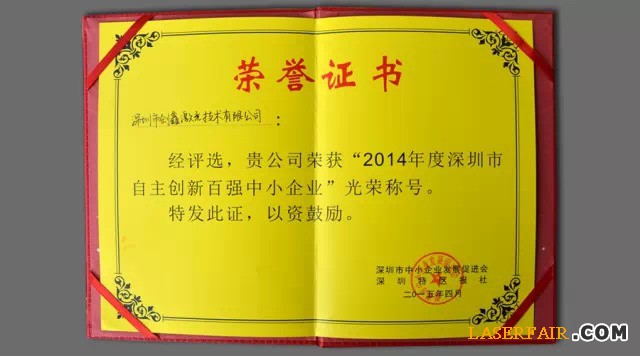 荣誉证书
深圳市创鑫激光技术有限公司：
经评选，贵公司荣获“2014年度深圳市
自主创新百强中小企业”光荣称号。
特发此证，以资鼓励。
深圳市中小企业发展促进会
深圳特区报社
二〇一五年四月
LASERFAIR.COM